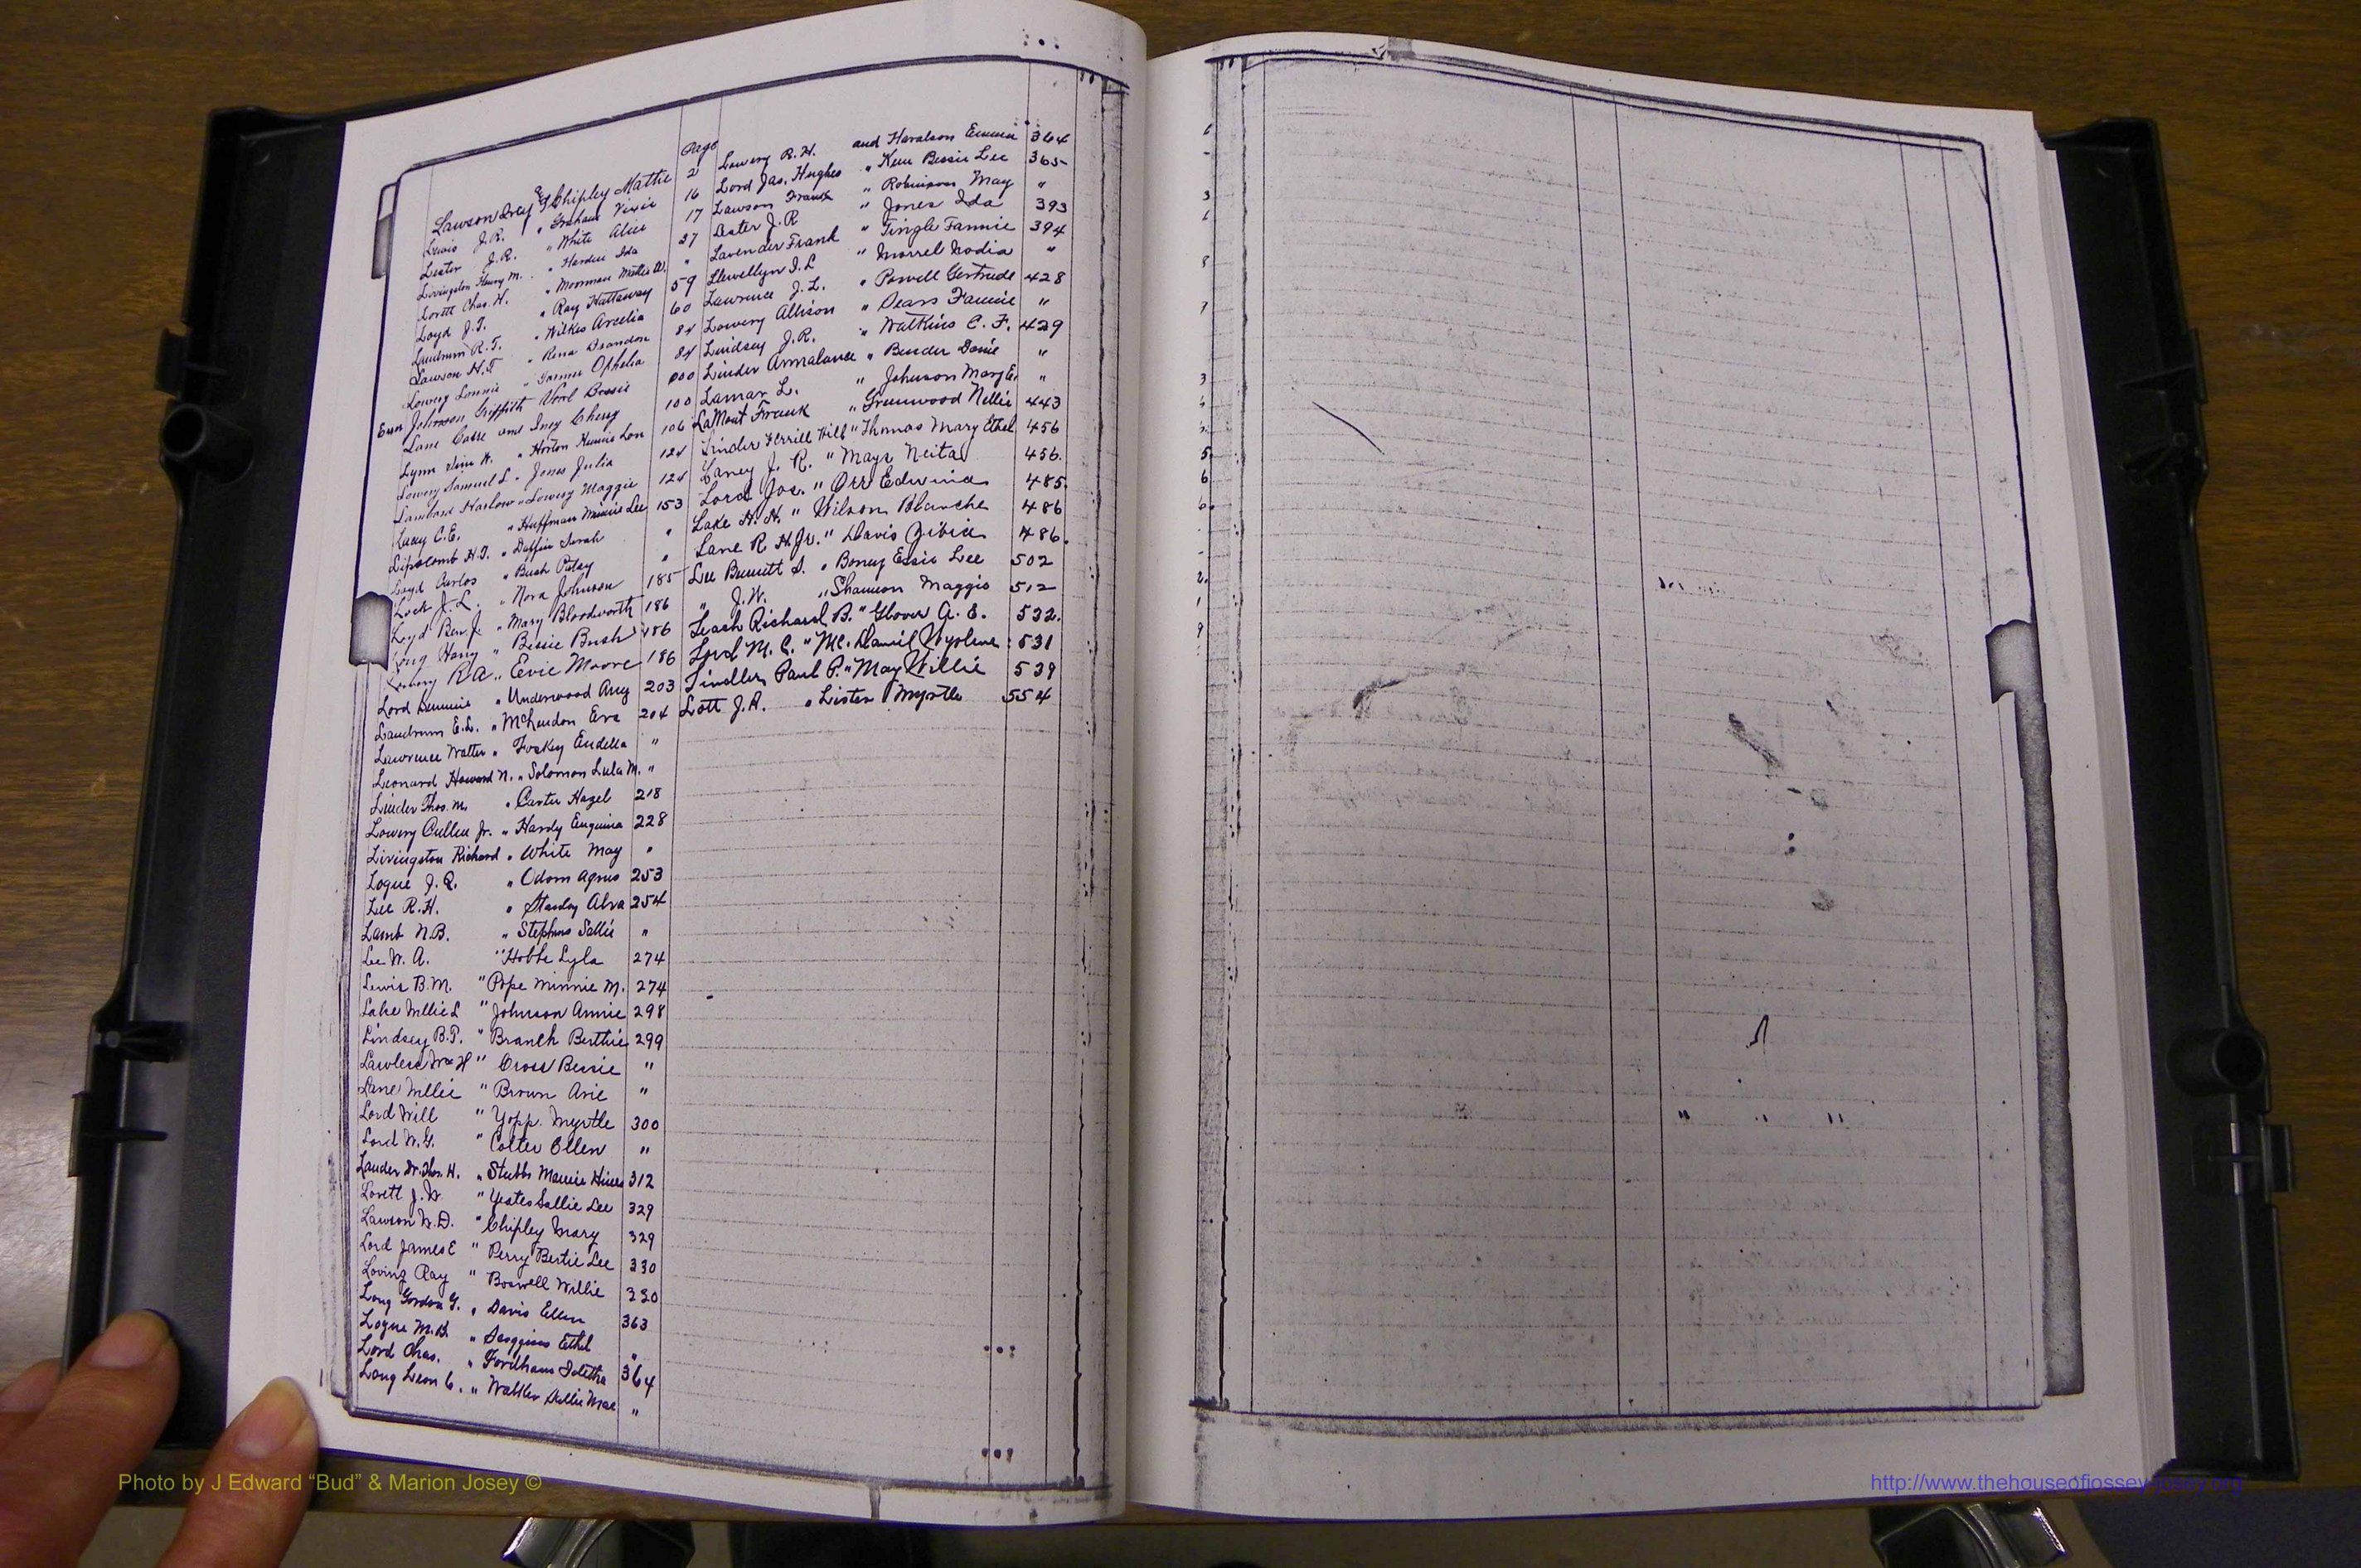 Page
Lawson Irey & Chipley Mattie 2
Lewis J.R. " Graham Vixie 16
Lester J.R. " White Alice 17
Livingston Henry M. " Harden Ida 37
Lovett Chas. H. " Moorman Mattie W. "
Loyd J.T. " Ray Hattaway 59
Landrum R.T. " Wilkes Arcelia 60
Lawson H.T. " Rena Brandon 84
Lowery Lonnie " Garner Ophelia 84
Johnson Griffith Veal Bessie 100
Lane Casse and Ivey Cherry 100
Lynn Jim W. " Horton Lou 106
Lowery Samuel L. " Jones Julia 124
Lambard Harlow " Lowery Maggie 124
Lucy C.E. " Huffman Minnie Lee 153
Lipscomb H.T. " Sarah "
Loyd Carlos " Bush Patsy "
Lock J.L. " Nora Johnson 185
Loyd Ben J. " Mary Bloodworth 186
Long Harry " Bessie Bush 186
Lowery R.A. " Evie Moore 186
Lord " Underwood Amy 203
Landrum E.L. " McLendon Eva 204
Lawrence Walter " Foskey Eudella "
Leonard Howard N. " Solomon Lula M. "
Linder Thos. M. " Carter Hazel 218
Lowery Cullen Jr. " Hardy Euquina 228
Livingston Richard " White May "
Logue J.Q. " Odom Agnes 253
Lee R.H. " Stanley Alva 254
Lamb N.B. " Stephens Sallie "
Lee W.A. " Hobbs Lyla 274
Lewis B.M. " Pope Minnie M. 274
Lake Willie L " Johnson Annie 298
Lindsey B.T. " Branch Berthie 299
Lawless Wm H " Cross Bessie "
Lane Willie " Brown Arie "
Lord Will " Yopp Myrtle 300
Lord W.G. " Colter Ellen "
Lauder Dr. Thos. H. " Stubbs Mamie Hines 312
Lovett J.W. " Yeates Sallie Lee 329
Lawson W.D. " Chipley Mary 329
Lord James E " Perry Bertie Lee 330
Loving Ray " Boswell Willie 330
Long Gordon G. " Davis Ellen 363
Logue M.D. " Scoggins Ethel "
Lord Chas. " Fordham Talitha 364
Long Leon C. " Walker Sallie Mae "
Lowery R.H. and Haralson Emma 364
Lord Jas. Hughes " Keen Bessie Lee 365
Lawson Frank " Robinson May "
Lester J.R " Jones Ida 393
Lavender Frank " Tingle Fannie 394
Llewellyn I.L " Morrel Nodia "
Lawrence J.L. " Powell Gertrude 428
Lowery Allison " Sears Fannie "
Lindsey J.R. " Watkins C.F. 429
Linder Annalance " Bender Donie "
Lamar L. " Johnson Mary E. "
LaMont Frank " Greenwood Nellie 443
Linder Ferrill Hill " Thomas Mary Ethel 456
Laney J.R. " Mays Neita 456.
Lord Jos. " Orr Edwina 485.
Lake H.H. " Wilson Blanche 486
Lane R H Jr. " Davis Zibia 486.
Lee Burnett S. " Boney Essie Lee 502
" J.W. " Shannon Maggie 512
Leach Richard B. " Glover A.E. 532.
Lord M.C. " McDaniel Wyolene 531
Lindler Paul P. " May Willie 539
Lott J.A. " Lister Myrtle 554
Photo by J Edward “Bud” & Marion Josey ©
http://www.thehouseofjossey-josey.org